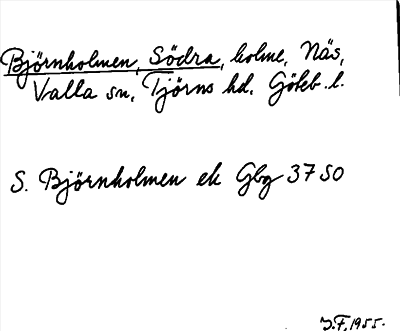 Björnholmen, Södra, holme, Näs,
Valla sn, Tjörns hd. Göteb. l.
S. Björnholmen ek Gbg 37 SO
J.F. 1955.